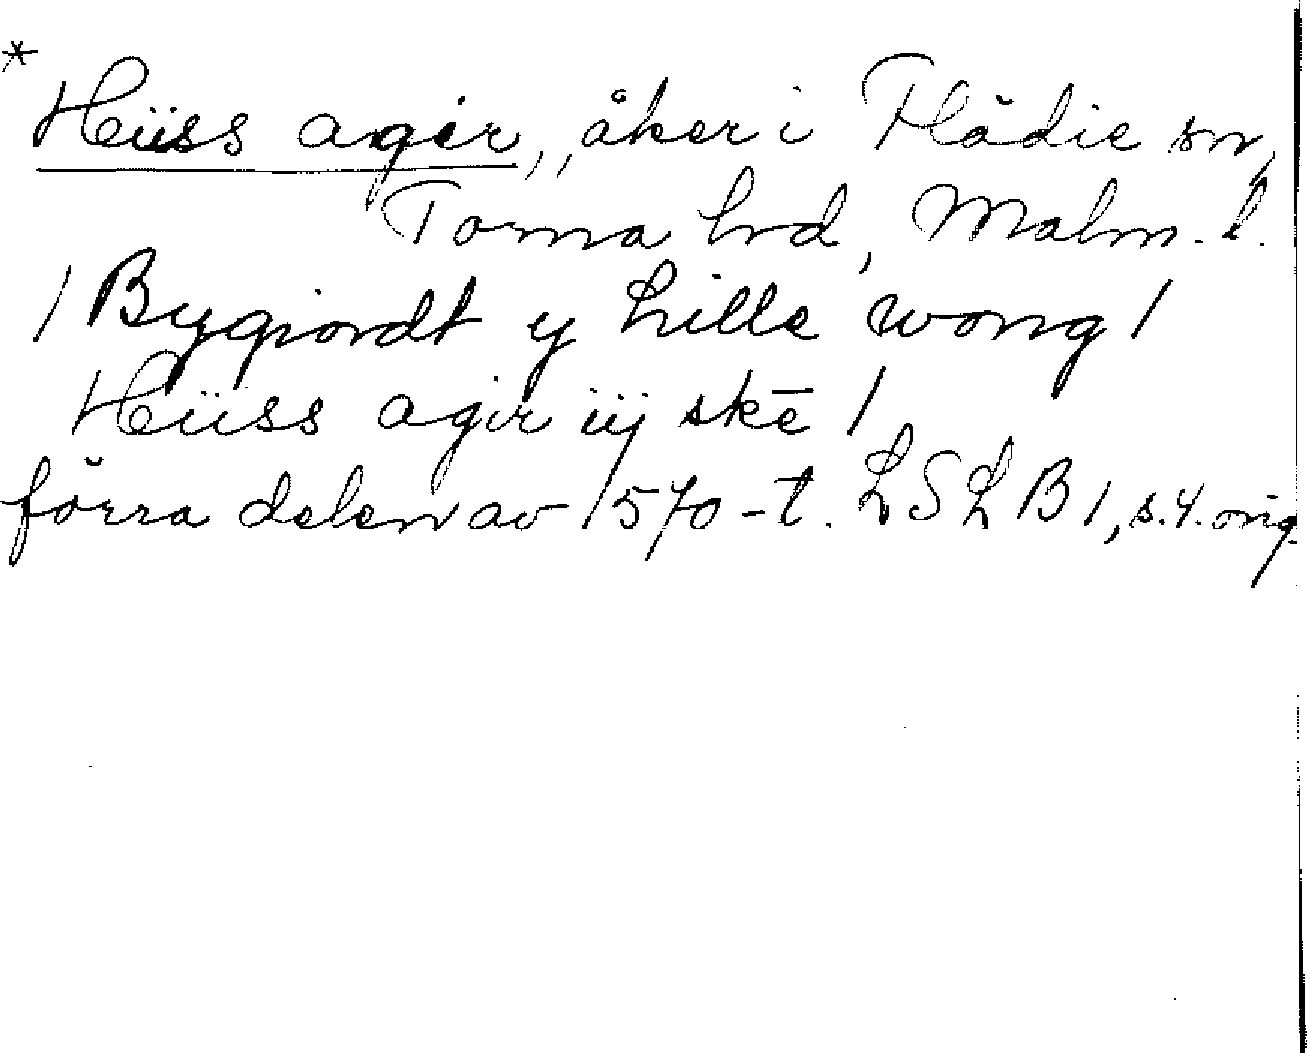 *
Hüss ager, åker i Flädie sn,
Torna hrd, Malm. l.
/ Bygiordt y Lille wong /
Hüss ager iij skē /
förra delen av 1570-t. LSLB1, s. 4. orig.